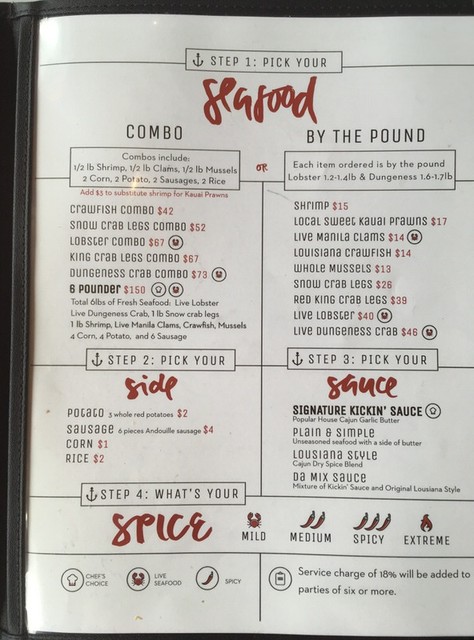 STEP 1: PICK YOUR
seafood
COMBO
Combos include:
1/2 lb Shrimp, 1/2 lb Clams, 1/2 lb Mussels
2 Corn, 2 Potato, 2 Sausages, 2 Rice
Add $3 to substitute shrimp for Kauai Prawns
CRAWFISH COMBO $42
SNOW CRAB LEGS COMBO $52
LOBSTER COMBO $67
KING CRAB LEGS COMBO $67
DUNGENESS CRAB COMBO $73
6 POUNDER $150
Total 6lbs of Fresh Seafood: Live Lobster
Live Dungeness Crab, 1 lb Snow crab legs
1 lb Shrimp, Live Manila Clams, Crawfish, Mussels
4 Corn, 4 Potato, and 6 Sausage
OR
BY THE POUND
Each item ordered is by the pound
Lobster 1.2-1.4lb & Dungeness 1.6-1.7lb
SHRIMP $15
LOCAL SWEET KAUAI PRAWNS $17
LIVE MANILA CLAMS $14
LOUISIANA CRAWFISH $14
WHOLE MUSSELS $13
SNOW CRAB LEGS $26
RED KING CRAB LEGS $39
LIVE LOBSTER $40
LIVE DUNGENESS CRAB $46
STEP 2: PICK YOUR
side
POTATO 3 whole red potatoes $2
SAUSAGE 6 pieces Andouille sausage $4
CORN $1
RICE $2
STEP 3: PICK YOUR
sauce
SIGNATURE KICKIN' SAUCE
Popular House Cajun Garlic Butter
PLAIN & SIMPLE
Unseasoned seafood with a side of butter
LOUSIANA STYLE
Cajun Dry Spice Blend
DA MIX SAUCE
Mixture of Kickin' Sauce and Original Lousiana Style
STEP 4: WHAT'S YOUR
SPICE
MILD
MEDIUM
SPICY
EXTREME
CHEF'S
CHOICE
LIVE
SEAFOOD
SPICY
Service charge of 18% will be added to
parties of six or more.